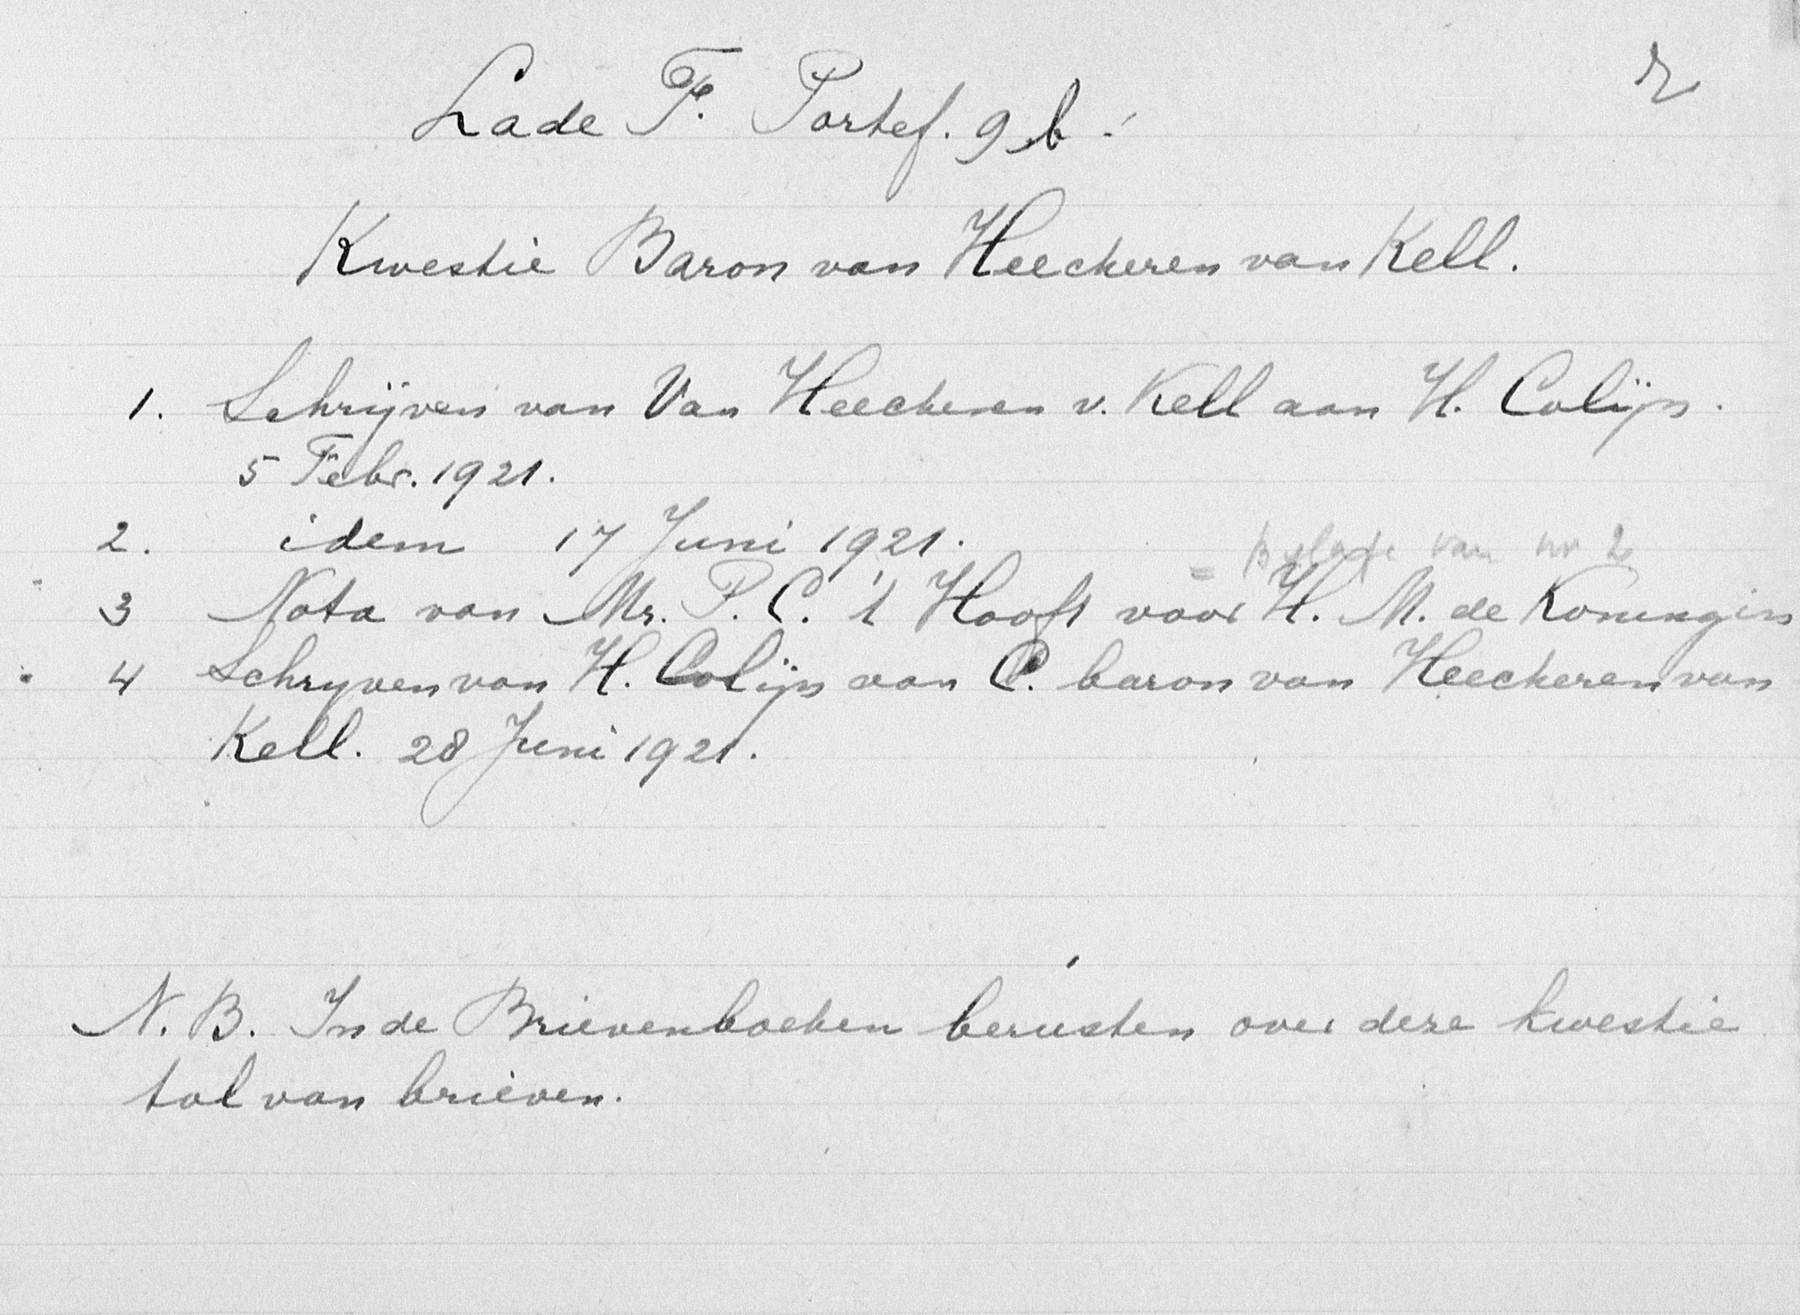 Lade F. Portef. 9b.
Kwestie Baron van Heeckeren van Kell.
1. Schrijven van Van Heeckeren v. Kell aan H. Colijn.
5 Febr. 1921.
2. idem 17 Juni 1921.
= Bijlage van nr 2
3 Nota van Mr. P. C. 't Hooft voor H. M. de Koningin
4 Schryven van H. Colijn aan C. baron van Heeckeren van
Kell. 28 Juni 1921.
N. B. In de Brievenboeken berusten over deze kwestie
tal van brieven.